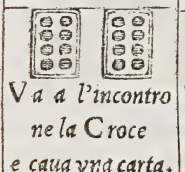 Va a l'incontro
ne la Croce
e caua vna carta.